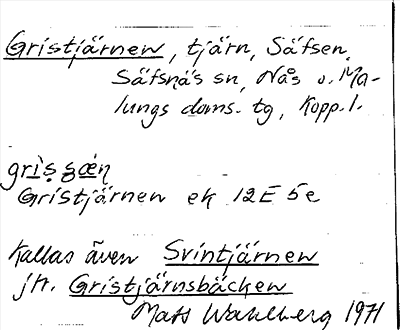 Gristjärnen, tjärn, Säfsen,
Säfsnäs sn, Nås o. Ma-
lungs doms. tg, Kopp. l.
grìs̩ s̩œ́n̥
Gristjärnen ek 12E 5e
Kallas även Svintjärnen
jfr. Gristjärnsbäcken
Mats Wahlberg 1971